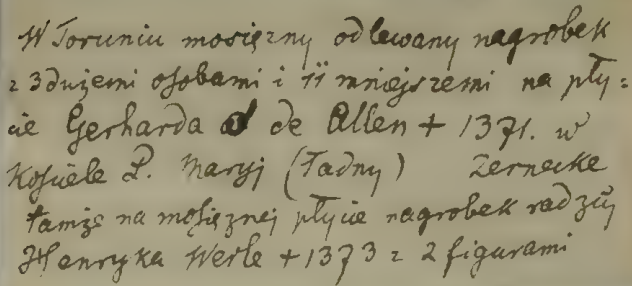 W Toruniu mosiężny odlewany nagrobek
z 3 dużemi osobami i 11 mniejszemi na pły=
cie Gerharda de Allen + 1371. w
Kościele P. Maryj (Ładny) Zernecke
tamże na mosiężnej płycie nagrobek radzcy
Henryka Werle + 1373 z 2 figurami